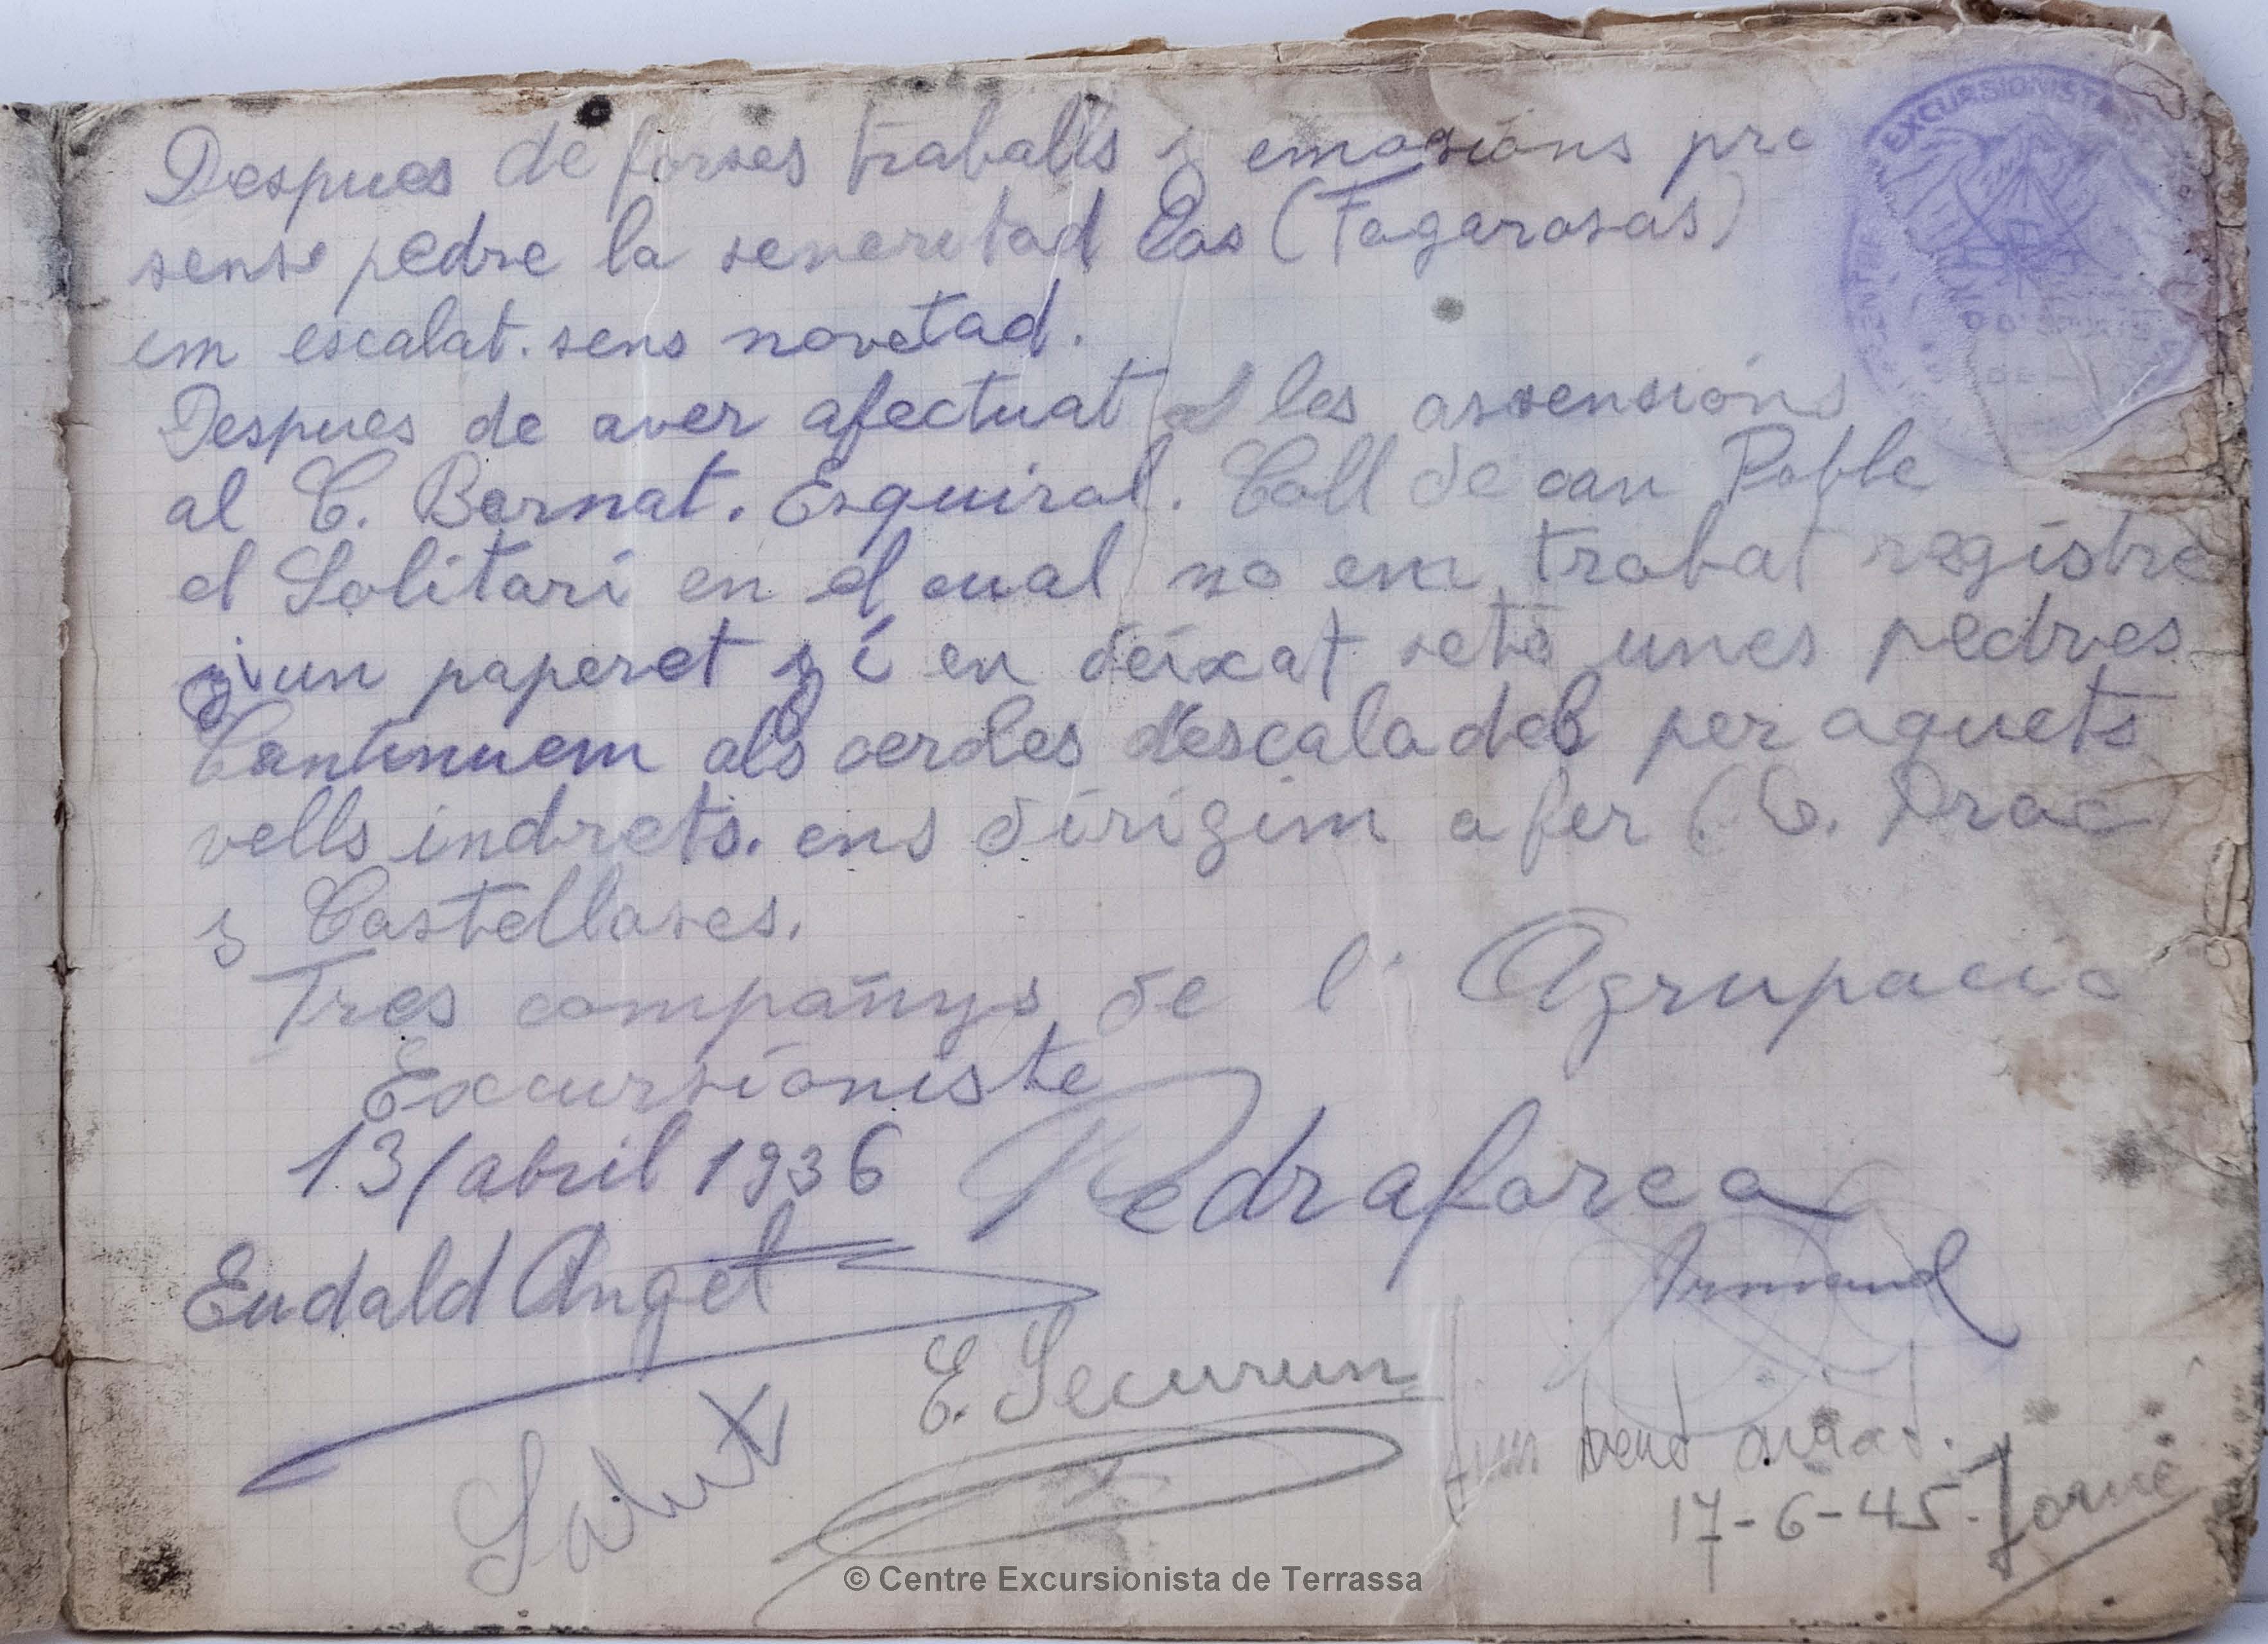 Despues de forses traballs y emosións pro
sense pedre la sereritad Eas (Fogarosas)
em escalat. sens novetad.
Despues de aver afectuat les assensións
al C. Bernat. Esquirol. Coll de can Poble
el Solitari en el cual no em trobat registre
un paperet y í en deixat sete unes pedres
Continuem als cerdes d'escalades per aquets
vells indrets. ens dirigim a fer (C. Drac
y Castellases.
Tres compañys de l' Agrupacio
Excursioniste
13/abril 1936 Pedraforca
Eudald Angel
Armand
E. Securun
Salut
17-6-45. Jorné
EXCURSIONISTA
© Centre Excursionista de Terrassa